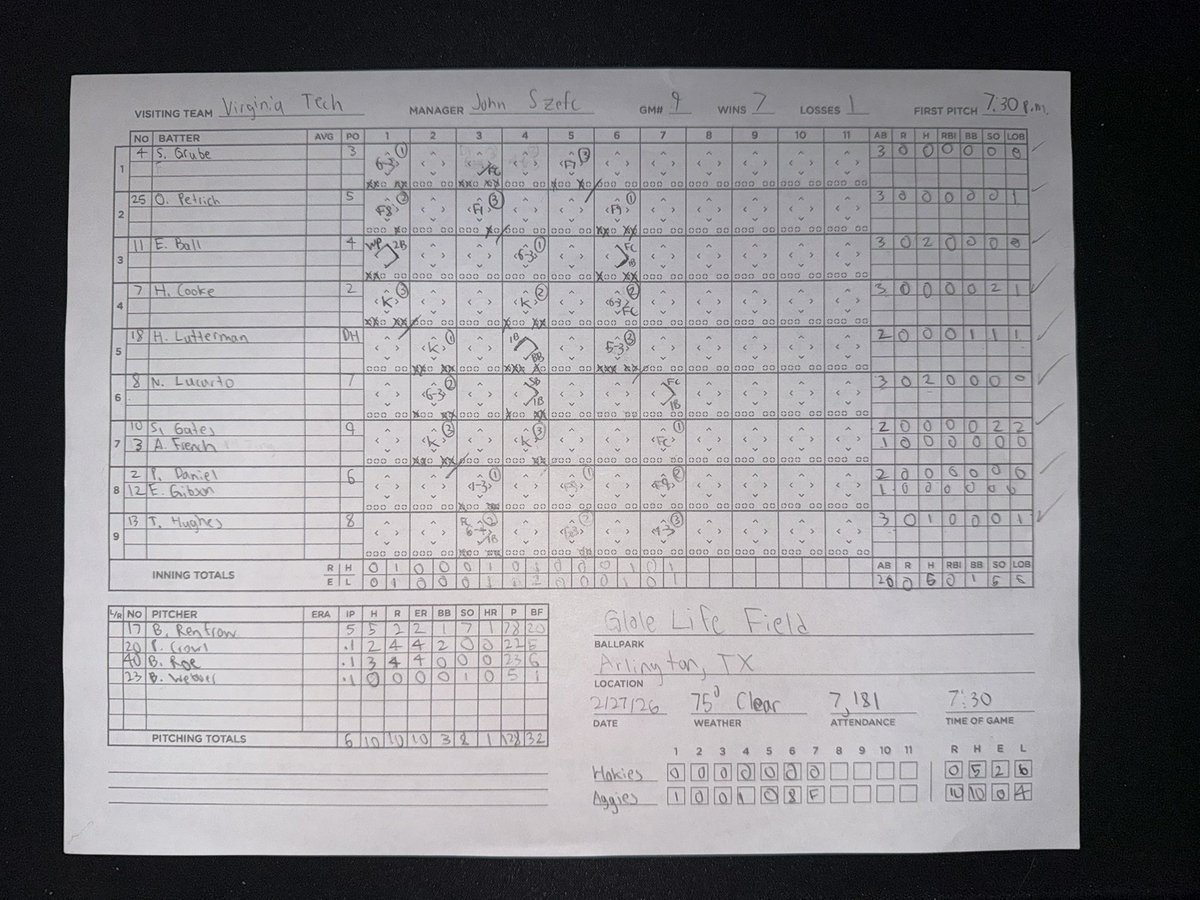 VISITING TEAM Virginia Tech MANAGER John Szefc GM# 9 WINS 7 LOSSES 1 FIRST PITCH 7:30 p.m.
NO BATTER AVG PO 1 2 3 4 5 6 7 8 9 10 11 AB R H RBI BB SO LOB
1 4 S. Grube 3 6-3 1 FC F7 3 3 0 0 0 0 0 0
2 25 O. Petrich 5 F8 2 F9 3 F9 1 3 0 0 0 0 0 1
3 11 E. Ball 4 WP 2B 6-3 1 FC 1B 3 0 2 0 0 0 0
4 7 H. Cooke 2 K 3 K 2 6-3 FC 2 3 0 0 0 0 2 1
5 18 H. Lutterman DH K 1 1B BB 5-3 3 2 0 0 0 1 1 1
6 8 N. Lucarto 7 6-3 2 SB 1B FC 1B 3 0 2 0 0 0 0
7 10 S. Gates 9 K 3 K 3 FC 1 2 0 0 0 0 2 2
3 A. French 1 0 0 0 0 0 0
8 2 P. Daniel 6 4-3 1 1 2 2 0 0 0 0 0 0
12 E. Gibson 1 0 0 0 0 0 0
9 13 T. Hughes 8 1B 2 4-3 3 3 0 1 0 0 0 1
INNING TOTALS R H 0 1 0 0 0 1 0 1 0 0 0 1 0 1 AB R H RBI BB SO LOB
E L 0 1 0 0 0 1 1 2 0 0 0 1 0 1 26 0 5 0 1 5 6
L/R NO PITCHER ERA IP H R ER BB SO HR P BF
17 B. Renfrow 5 5 2 2 1 7 1 78 20
20 P. Crowl .1 2 4 4 2 0 0 22 5
40 B. Roe .1 3 4 4 0 0 0 23 6
23 B. Weber .1 0 0 0 0 1 0 5 1
PITCHING TOTALS 6 10 10 10 3 8 1 128 32
Globe Life Field
BALLPARK
Arlington, TX
LOCATION
2/27/26 75° Clear 7,181 7:30
DATE WEATHER ATTENDANCE TIME OF GAME
1 2 3 4 5 6 7 8 9 10 11 R H E L
Hokies 0 0 0 0 0 0 0 0 5 2 6
Aggies 1 0 0 1 0 8 F 10 10 0 4